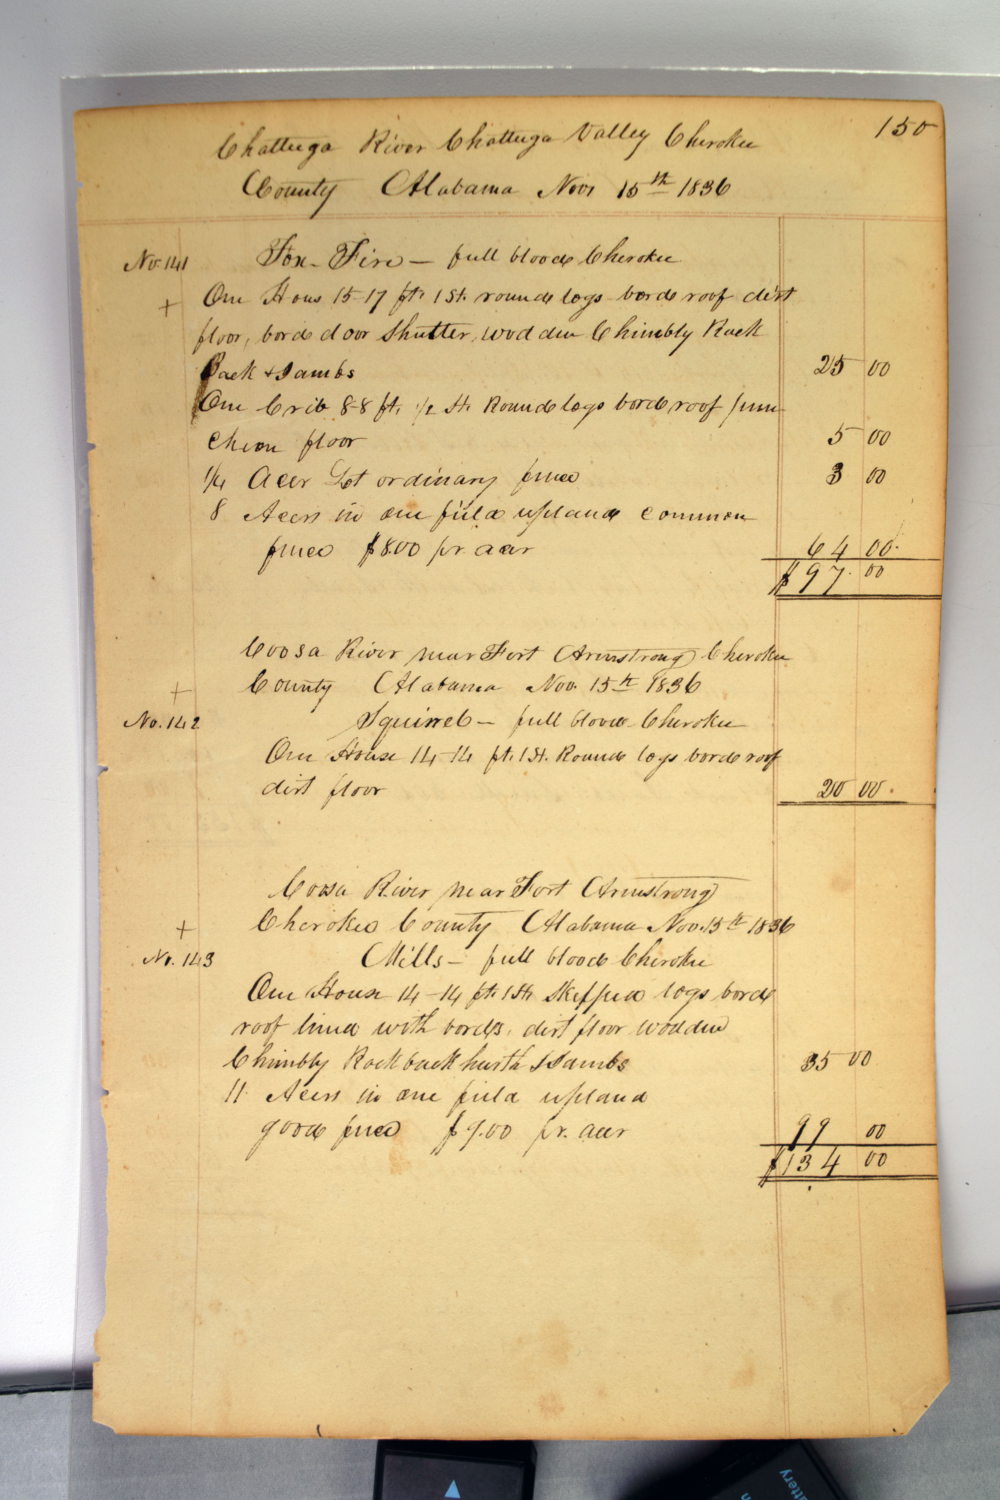 150
Chattuga River Chattuga Valley Cherokee
County Alabama Novr 15th 1836
No. 141 Fox-Fire — full blood Cherokee
+ One Hous 15-17 ft. 1 St. round logs bord roof dirt
floor, bord door Shutter, wodden Chimbly Rock
Back & Jambs 25 00
One Crib 8-8 ft. 1/2 St. Round logs bord roof pun
cheon floor 5 00
1/4 Acer Lot ordinary fence 3 00
8 Acers in one field upland common
fence $8.00 pr. acer 64 00
$97 00
Coosa River near Fort Armstrong Cherokee
+ County Alabama Nov. 15th 1836
No. 142 Squirrel — full blood Cherokee
One House 14-14 ft. 1 St. Round logs bord roof
dirt floor 20 00
Coosa River near Fort Armstrong
+ Cherokee County Alabama Nov. 15th 1836
No. 143 Mills — full blood Cherokee
One House 14-14 ft. 1 St. Skelped logs bord
roof lined with bords, dirt floor wodden
Chimbly Rock back hearth & Jambs 35 00
11 Acers in one field upland
good fence $9.00 pr. acer 99 00
$134 00
ttery